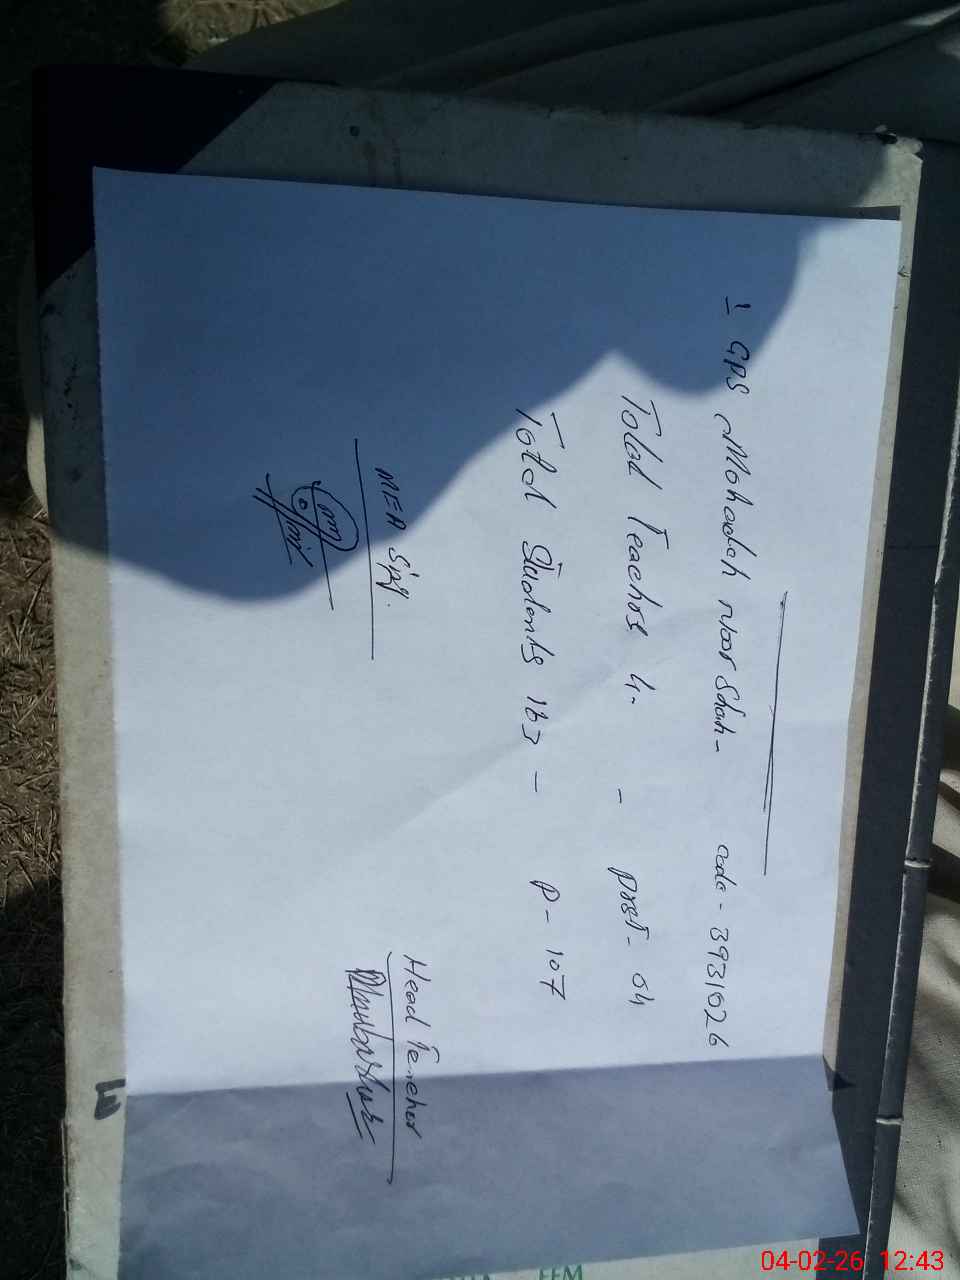 1 GPS Mohadah Noor Shah - code - 3931026
Total Teachers 4 - - prst - 04
Total Students 163 - P - 107
MEA Sig.
Head Teacher
E
EEM
04-02-26 12:43